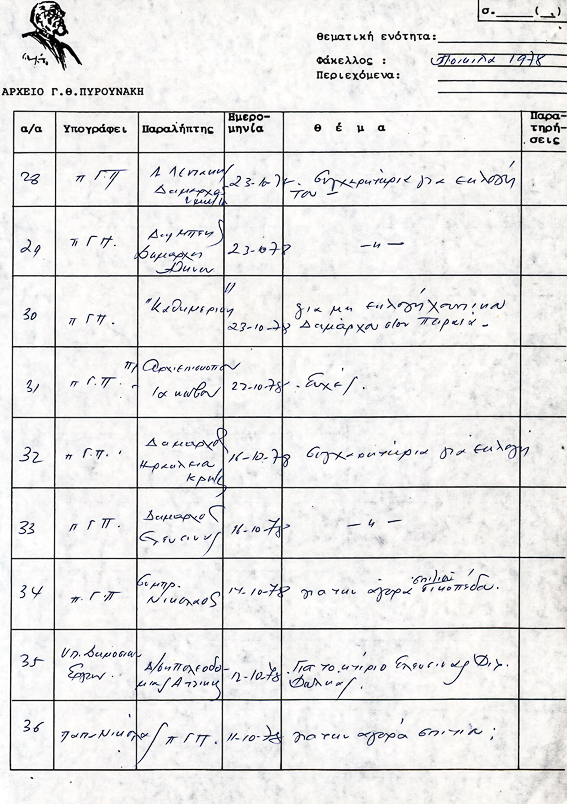 σ.____(__)
Θεματική ενότητα:
Φάκελλος : Ποικίλα 1978
Περιεχόμενα:
ΑΡΧΕΙΟ Γ.Θ.ΠΥΡΟΥΝΑΚΗ
α/α Υπογράφει Παραλήπτης Ημερο-μηνία θ έ μ α Παρα-τηρή-σεις
28 π Γ.Π Δήμαρχο 23-10-78 Συγχαρητήρια για εκλογή του
29 π Γ.Π. Δήμαρχο 23-10-78 -"-
30 π Γ.Π. "Καθημερινή" 23-10-78 για μη εκλογή χουντικού Δημάρχου στον Πειραιά.
31 π Γ.Π. Αρχιεπίσκοπον Ιάκωβον 22-10-78 Ευχές.
32 π Γ.Π. Δήμαρχο Ηράκλειο Κρήτης 16-10-78 Συγχαρητήρια για εκλογή
33 π Γ.Π. Δήμαρχο Ελευσίνος 16-10-78 -"-
34 π. Γ.Π Νικόλαος 14-10-78 για την αγορά σπιτιού οικοπέδου.
35 Υπ. Δημοσίων Έργων. Αττικής 12-10-78 Για το κτίριο Ελευσίνας
36 11-10-78 π Γ.Π. για την αγορά σπιτιού;